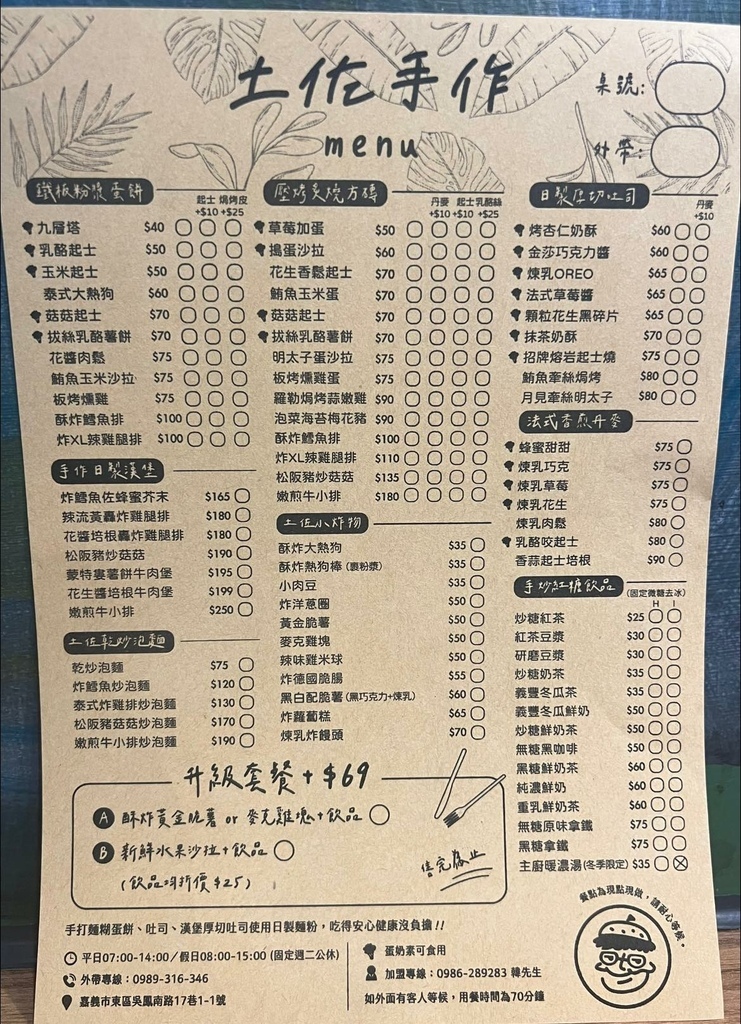 土佐手作
menu
桌號:
外帶:
鐵板粉漿蛋餅
起士+$10 焗烤皮+$25
九層塔 $40
乳酪起士 $50
玉米起士 $50
泰式大熱狗 $60
菇菇起士 $70
拔絲乳酪薯餅 $70
花醬肉鬆 $75
鮪魚玉米沙拉 $75
板烤燻雞 $75
酥炸鱈魚排 $100
炸XL辣雞腿排 $100
手作日製漢堡
炸鱈魚佐蜂蜜芥末 $165
辣流黃轟炸雞腿排 $180
花醬培根轟炸雞腿排 $180
松阪豬炒菇菇 $190
蒙特婁薯餅牛肉堡 $195
花生醬培根牛肉堡 $199
嫩煎牛小排 $250
土佐乾炒泡麵
乾炒泡麵 $75
炸鱈魚炒泡麵 $120
泰式炸雞排炒泡麵 $130
松阪豬菇菇炒泡麵 $170
嫩煎牛小排炒泡麵 $190
壓烤炙燒方磚
丹麥+$10 起士+$10 乳酪絲+$25
草莓加蛋 $50
搗蛋沙拉 $60
花生香鬆起士 $70
鮪魚玉米蛋 $70
菇菇起士 $70
拔絲乳酪薯餅 $70
明太子蛋沙拉 $75
板烤燻雞蛋 $75
羅勒焗烤蒜嫩雞 $90
泡菜海苔梅花豬 $90
酥炸鱈魚排 $100
炸XL辣雞腿排 $110
松阪豬炒菇菇 $135
嫩煎牛小排 $180
土佐小炸物
酥炸大熱狗 $35
酥炸熱狗棒(裹粉漿) $35
小肉豆 $35
炸洋蔥圈 $50
黃金脆薯 $50
麥克雞塊 $50
辣味雞米球 $50
炸德國脆腸 $55
黑白配脆薯(黑巧克力+煉乳) $60
炸蘿蔔糕 $65
煉乳炸饅頭 $70
日製厚切吐司
丹麥+$10
烤杏仁奶酥 $60
金莎巧克力醬 $60
煉乳OREO $65
法式草莓醬 $65
顆粒花生黑碎片 $65
抹茶奶酥 $70
招牌熔岩起士燒 $75
鮪魚牽絲焗烤 $80
月見牽絲明太子 $80
法式香煎丹麥
蜂蜜甜甜 $75
煉乳巧克 $75
煉乳草莓 $75
煉乳花生 $75
煉乳肉鬆 $80
乳酪咬起士 $80
香蒜起士培根 $90
手炒紅糖飲品 (固定微糖去冰)
H I
炒糖紅茶 $25
紅茶豆漿 $30
研磨豆漿 $30
炒糖奶茶 $35
義豐冬瓜茶 $35
義豐冬瓜鮮奶 $50
炒糖鮮奶茶 $50
無糖黑咖啡 $50
黑糖鮮奶茶 $60
純濃鮮奶 $60
重乳鮮奶茶 $60
無糖原味拿鐵 $75
黑糖拿鐵 $75
主廚暖濃湯(冬季限定) $35
升級套餐+$69
A 酥炸黃金脆薯 or 麥克雞塊+飲品
B 新鮮水果沙拉+飲品
(飲品均折價$25)
售完為止
手打麵糊蛋餅、吐司、漢堡厚切吐司使用日製麵粉，吃得安心健康沒負擔!!
平日07:00-14:00/假日08:00-15:00 (固定週二公休)
外帶專線：0989-316-346
嘉義市東區吳鳳南路17巷1-1號
蛋奶素可食用
加盟專線：0986-289283 韓先生
如外面有客人等候，用餐時間為70分鐘
餐點為現點現做，請耐心等候。